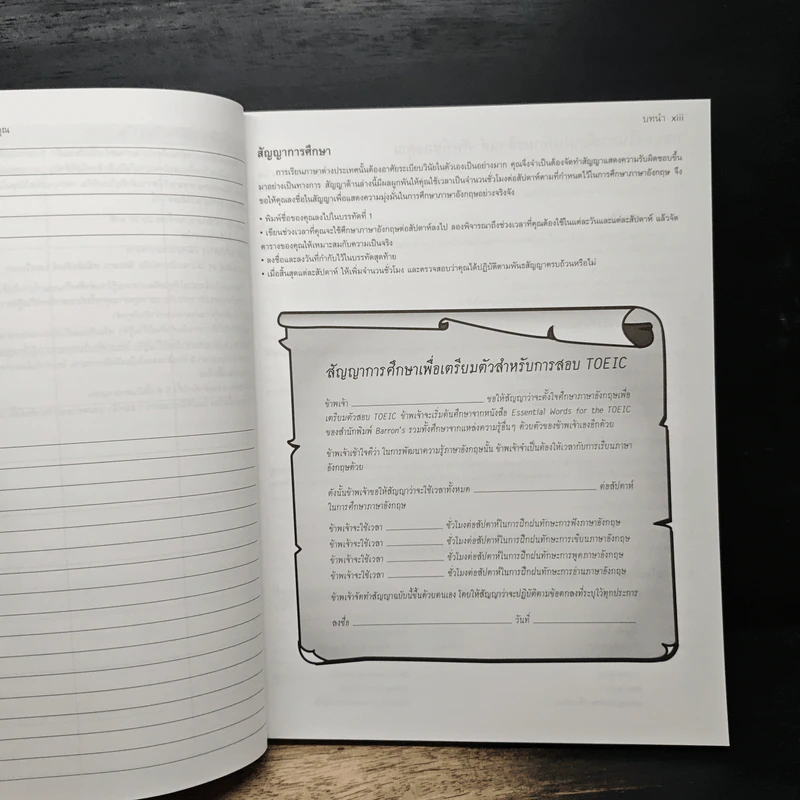 คุณ
บทนำ xiii
สัญญาการศึกษา
การเรียนภาษาต่างประเทศนั้นต้องอาศัยระเบียบวินัยในตัวเองเป็นอย่างมาก คุณจึงจำเป็นต้องจัดทำสัญญาแสดงความรับผิดชอบขึ้น
มาอย่างเป็นทางการ สัญญาด้านล่างนี้มีผลผูกพันให้คุณใช้เวลาเป็นจำนวนชั่วโมงต่อสัปดาห์ตามที่กำหนดไว้ในการศึกษาภาษาอังกฤษ จึง
ขอให้คุณลงชื่อในสัญญาเพื่อแสดงความมุ่งมั่นในการศึกษาภาษาอังกฤษอย่างจริงจัง
• พิมพ์ชื่อของคุณลงไปในบรรทัดที่ 1
• เขียนช่วงเวลาที่คุณจะใช้ศึกษาภาษาอังกฤษต่อสัปดาห์ลงไป ลองพิจารณาถึงช่วงเวลาที่คุณต้องใช้ในแต่ละวันและแต่ละสัปดาห์ แล้วจัด
ตารางของคุณให้เหมาะสมกับความเป็นจริง
• ลงชื่อและลงวันที่กำกับไว้ในบรรทัดสุดท้าย
• เมื่อสิ้นสุดแต่ละสัปดาห์ ให้เพิ่มจำนวนชั่วโมง และตรวจสอบว่าคุณได้ปฏิบัติตามพันธสัญญาครบถ้วนหรือไม่
สัญญาการศึกษาเพื่อเตรียมตัวสำหรับการสอบ TOEIC
ข้าพเจ้า ____________________ ขอให้สัญญาว่าจะตั้งใจศึกษาภาษาอังกฤษเพื่อ
เตรียมตัวสอบ TOEIC ข้าพเจ้าจะเริ่มต้นศึกษาจากหนังสือ Essential Words for the TOEIC
ของสำนักพิมพ์ Barron's รวมทั้งศึกษาจากแหล่งความรู้อื่นๆ ด้วยตัวของข้าพเจ้าเองอีกด้วย
ข้าพเจ้าเข้าใจดีว่า ในการพัฒนาความรู้ภาษาอังกฤษนั้น ข้าพเจ้าจำเป็นต้องให้เวลากับการเรียนภาษา
อังกฤษด้วย
ดังนั้นข้าพเจ้าขอให้สัญญาว่าจะใช้เวลาทั้งหมด ____________________ ต่อสัปดาห์
ในการศึกษาภาษาอังกฤษ
ข้าพเจ้าจะใช้เวลา __________ ชั่วโมงต่อสัปดาห์ในการฝึกฝนทักษะการฟังภาษาอังกฤษ
ข้าพเจ้าจะใช้เวลา __________ ชั่วโมงต่อสัปดาห์ในการฝึกฝนทักษะการเขียนภาษาอังกฤษ
ข้าพเจ้าจะใช้เวลา __________ ชั่วโมงต่อสัปดาห์ในการฝึกฝนทักษะการพูดภาษาอังกฤษ
ข้าพเจ้าจะใช้เวลา __________ ชั่วโมงต่อสัปดาห์ในการฝึกฝนทักษะการอ่านภาษาอังกฤษ
ข้าพเจ้าจัดทำสัญญาฉบับนี้ขึ้นด้วยตนเอง โดยให้สัญญาว่าจะปฏิบัติตามข้อตกลงที่ระบุไว้ทุกประการ
ลงชื่อ ____________________ วันที่ ____________________